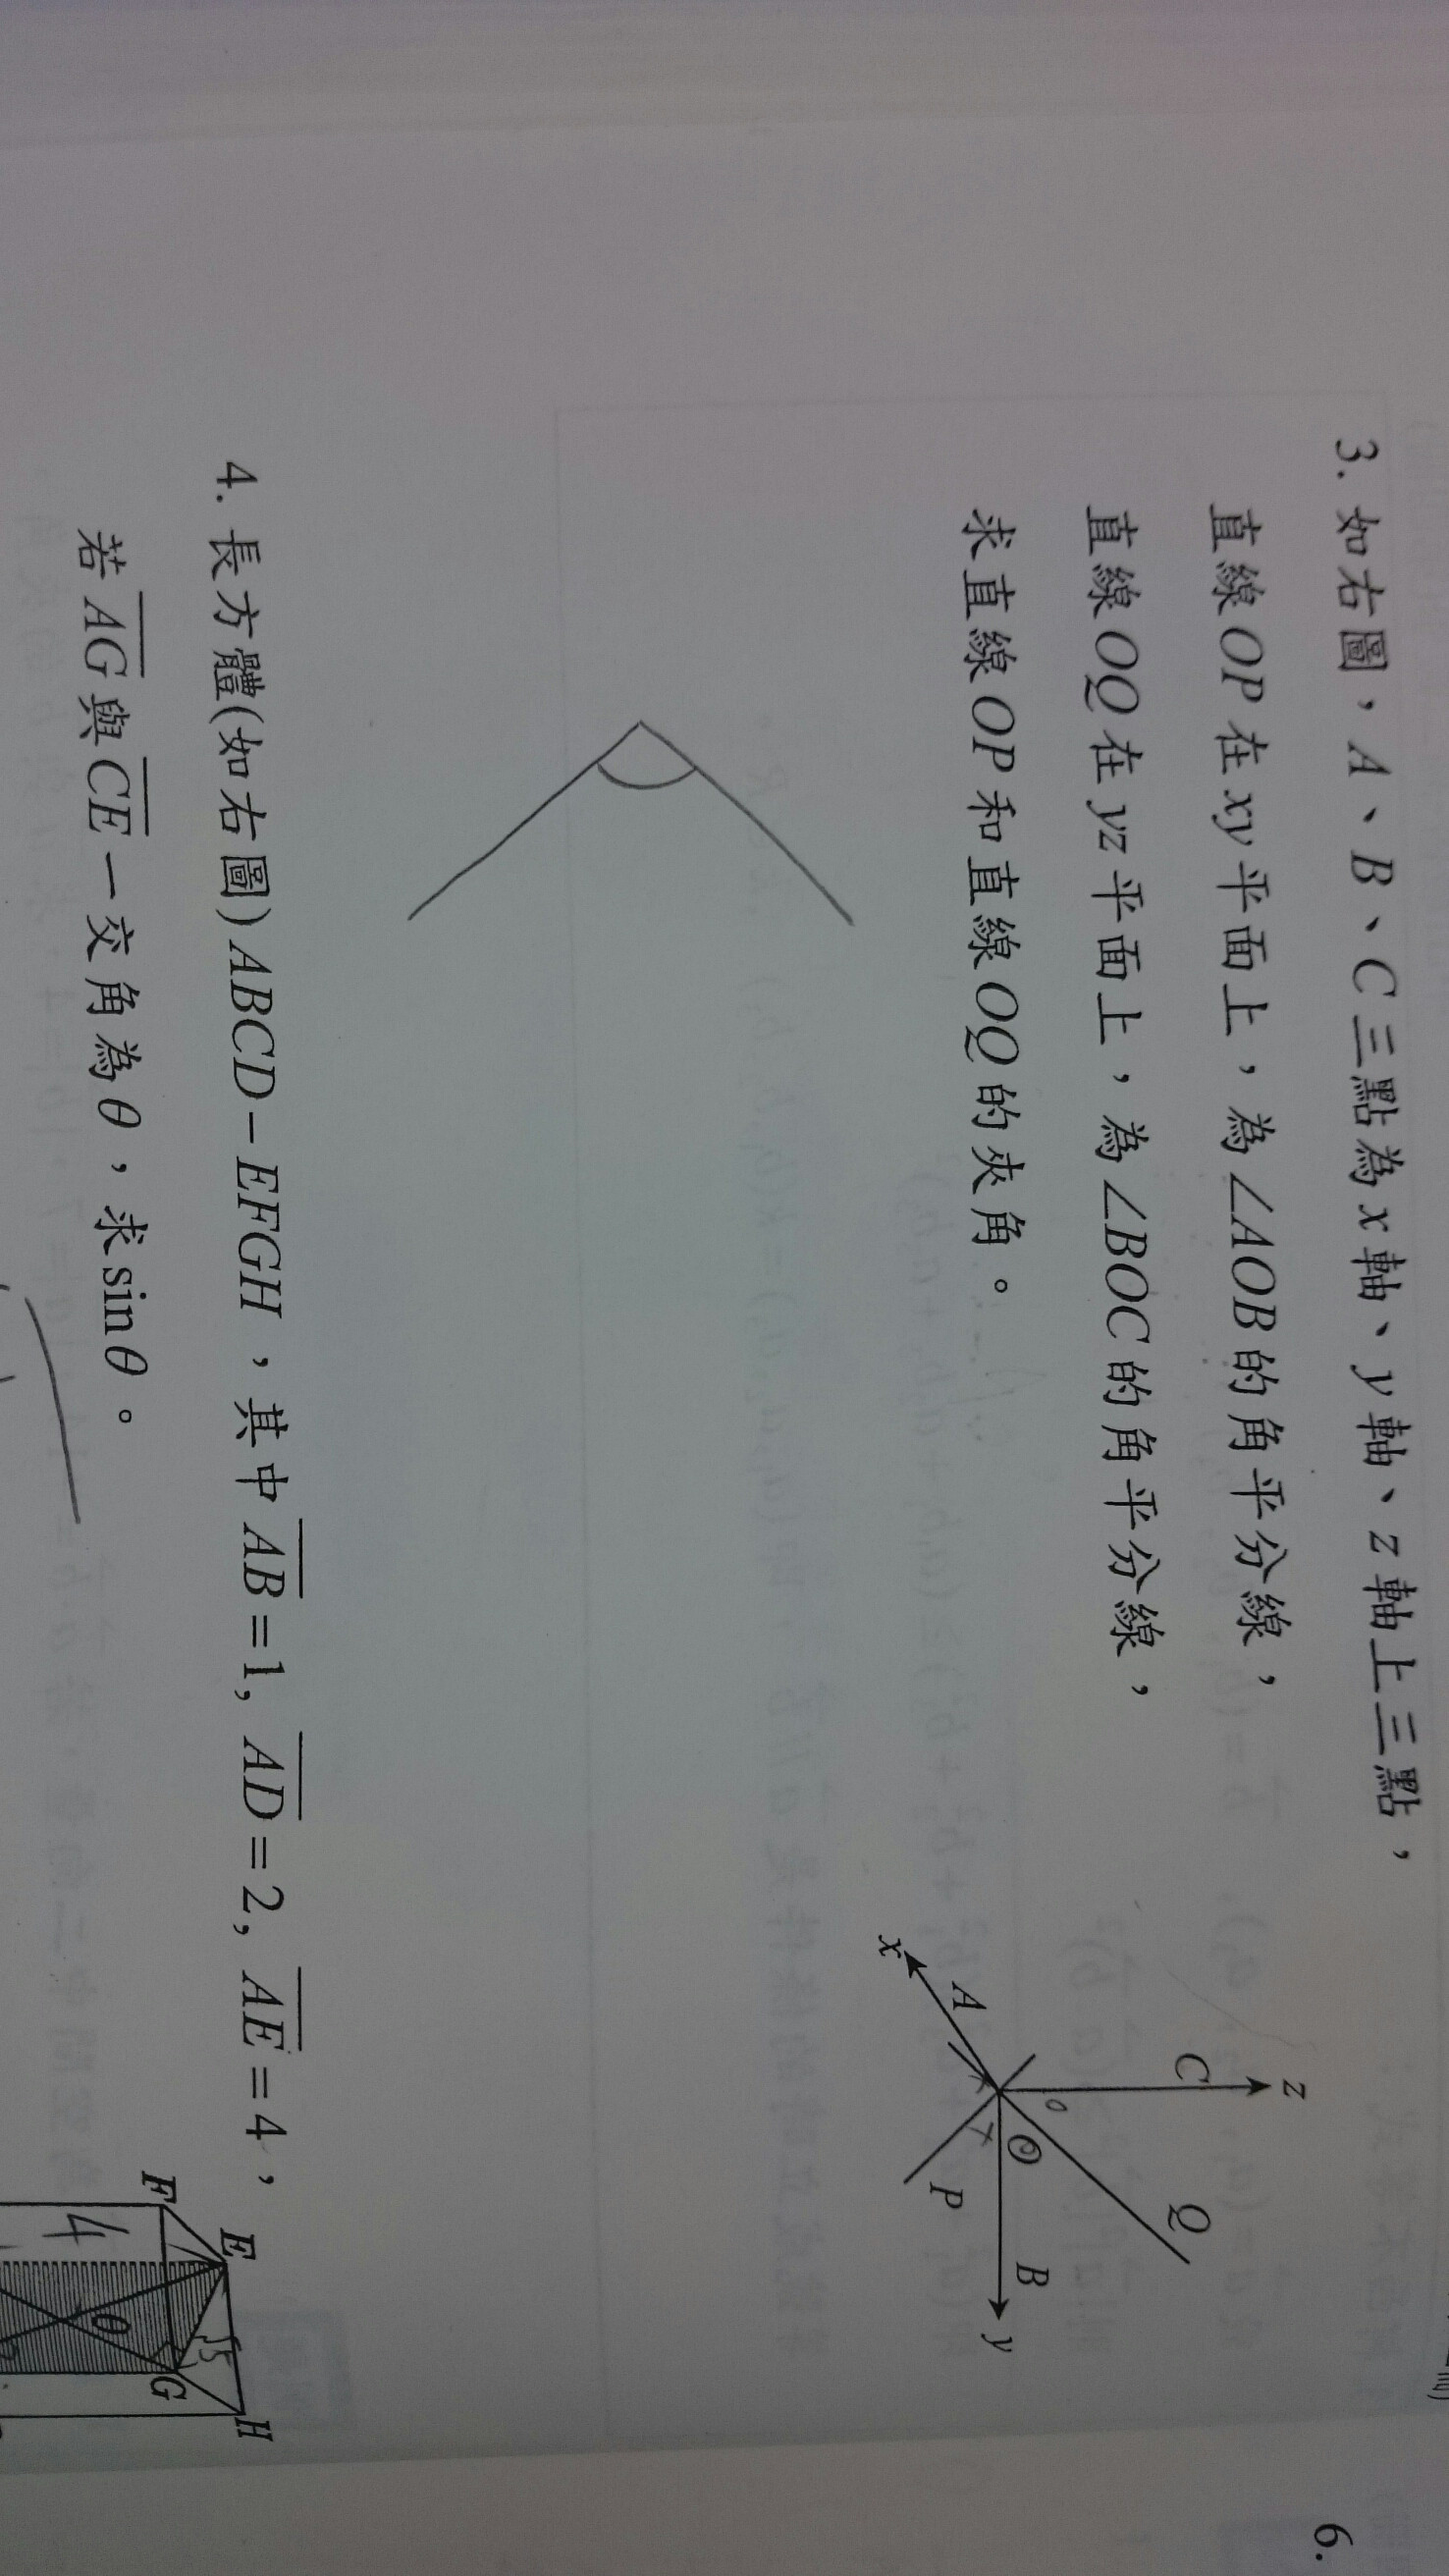 3. 如右圖，A、B、C三點為x軸、y軸、z軸上三點，
直線OP在xy平面上，為∠AOB的角平分線，
直線OQ在yz平面上，為∠BOC的角平分線，
求直線OP和直線OQ的夾角。
z
C
Q
O
B
y
A
x
P
4. 長方體(如右圖)ABCD−EFGH，其中AB=1, AD=2, AE=4，
若AG與CE一交角為θ，求sinθ。
E
H
F
G
4
√5
θ
6.